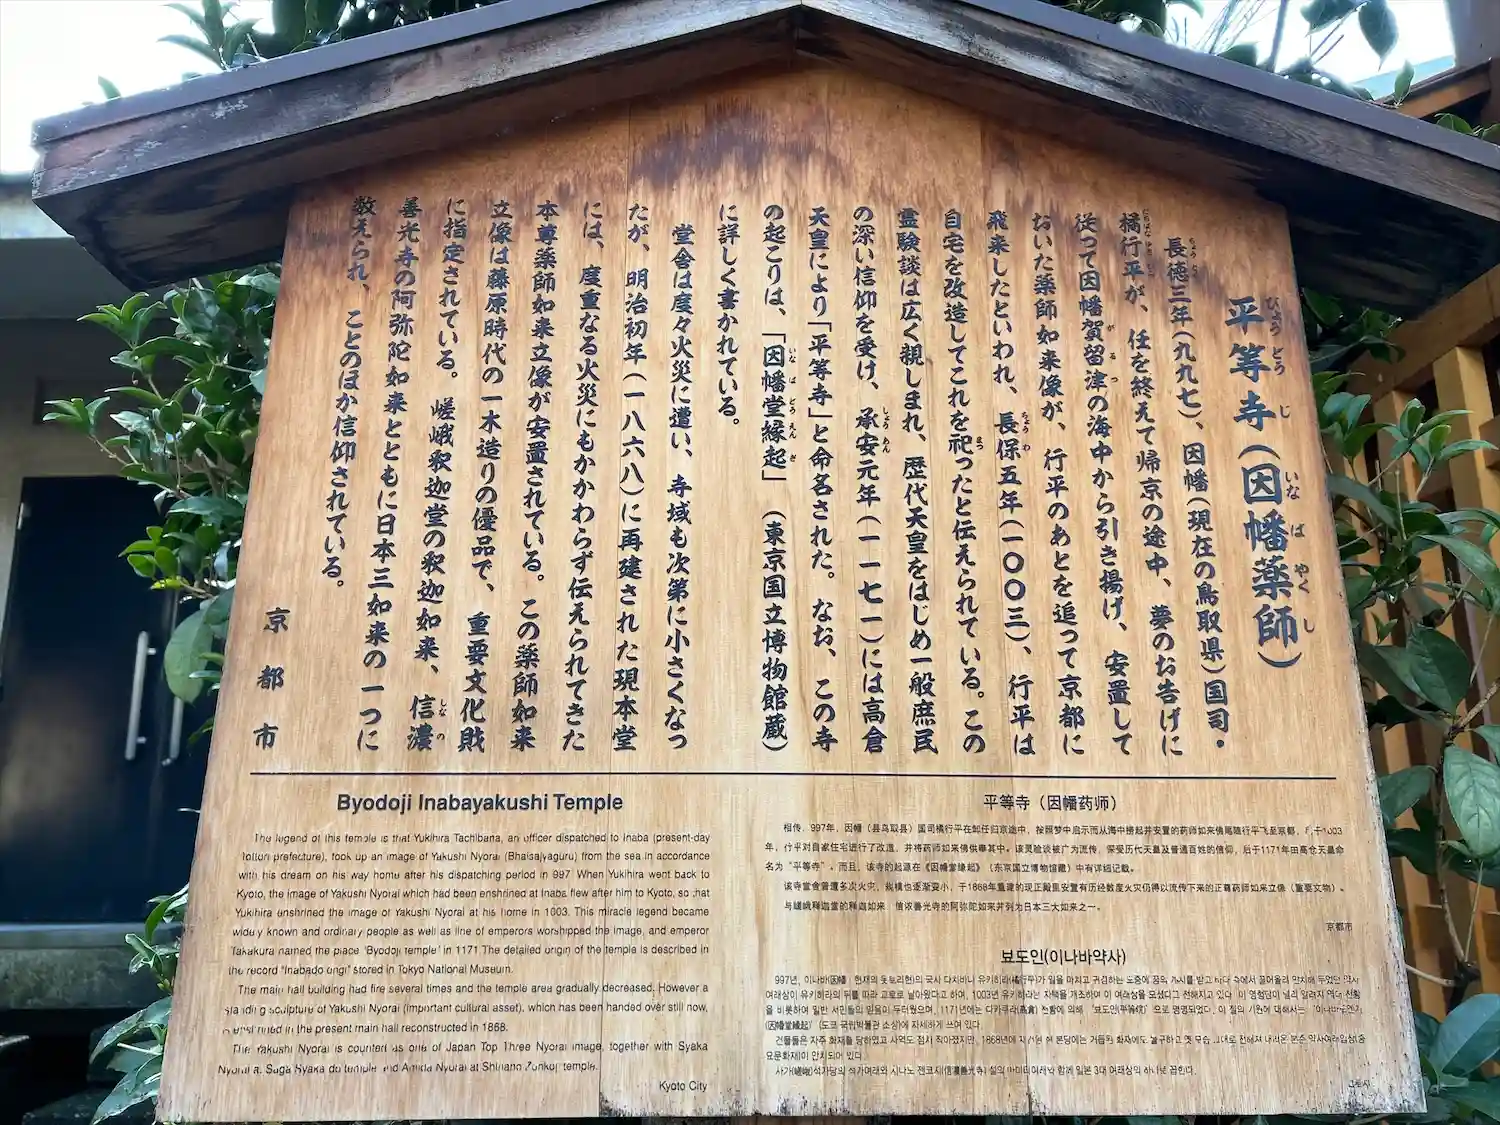 平等寺(因幡薬師)
長徳三年(九九七)、因幡(現在の鳥取県)国司・
橘行平が、任を終えて帰京の途中、夢のお告げに
従って因幡賀留津の海中から引き揚げ、安置して
おいた薬師如来像が、行平のあとを追って京都に
飛来したといわれ、長保五年(一〇〇三)、行平は
自宅を改造してこれを祀ったと伝えられている。この
霊験談は広く親しまれ、歴代天皇をはじめ一般庶民
の深い信仰を受け、承安元年(一一七一)には高倉
天皇により「平等寺」と命名された。なお、この寺
の起こりは、「因幡堂縁起」(東京国立博物館蔵)
に詳しく書かれている。
堂舎は度々火災に遭い、寺域も次第に小さくなっ
たが、明治初年(一八六八)に再建された現本堂
には、度重なる火災にもかかわらず伝えられてきた
本尊薬師如来立像が安置されている。この薬師如来
立像は藤原時代の一木造りの優品で、重要文化財
に指定されている。嵯峨釈迦堂の釈迦如来、信濃
善光寺の阿弥陀如来とともに日本三如来の一つに
数えられ、ことのほか信仰されている。
京都市
Byodoji Inabayakushi Temple
The legend of this temple is that Yukihira Tachibana, an officer dispatched to Inaba (present-day
Tottori prefecture), took up an image of Yakushi Nyorai (Bhaisajyaguru) from the sea in accordance
with his dream on his way home after his dispatching period in 997. When Yukihira went back to
Kyoto, the image of Yakushi Nyorai which had been enshrined at Inaba flew after him to Kyoto, so that
Yukihira enshrined the image of Yakushi Nyorai at his home in 1003. This miracle legend became
widely known and ordinary people as well as line of emperors worshipped the image, and emperor
Takakura named the place "Byodoji temple" in 1171 The detailed origin of the temple is described in
the record "Inabado engi" stored in Tokyo National Museum.
The main hall building had fire several times and the temple area gradually decreased. However a
standing sculpture of Yakushi Nyorai (important cultural asset), which has been handed over still now,
is enshrined in the present main hall reconstructed in 1868.
The Yakushi Nyorai is counted as one of Japan Top Three Nyorai image, together with Syaka
Nyorai at Saga Syaka do temple and Amida Nyorai at Shinano Zenkoji temple.
Kyoto City
平等寺（因幡药师）
相传，997年，因幡（县鸟取县）国司橘行平在卸任归京途中，按照梦中启示而从海中捞起并安置的药师如来佛尾随行平飞至京都，于1003
年，行平对自家住宅进行了改造，并将药师如来佛供奉其中。该灵验谈被广为流传，深受历代天皇及普通百姓的信仰，后于1171年由高仓天皇命
名为“平等寺”。而且，该寺的起源在《因幡堂缘起》（东京国立博物馆藏）中有详细记载。
该寺堂舍曾遭多次火灾，规模也逐渐变小，于1868年重建的现正殿里安置有历经数度火灾仍得以流传下来的正尊药师如来立像（重要文物）。
与嵯峨释迦堂的释迦如来、信浓善光寺的阿弥陀如来并列为日本三大如来之一。
京都市
뵤도인(이나바약사)